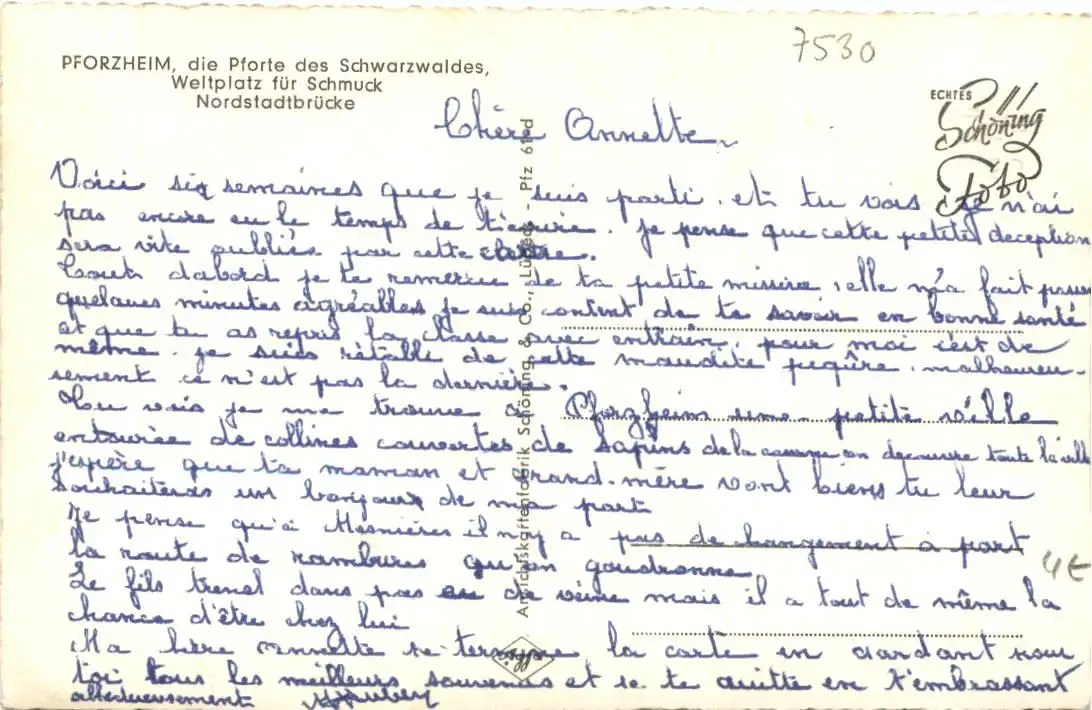 7530
PFORZHEIM, die Pforte des Schwarzwaldes,
Weltplatz für Schmuck
Nordstadtbrücke
ECHTES
Schöning
Foto
Chère Annette,
Voici six semaines que je suis parti et tu vois je n'ai
pas encore eu le temps de t'écrire. Je pense que cette petite deception
sera vite oubliée par cette
tout dabord je te remercie de ta petite missive, elle m'a fait passer
quelques minutes agréables je suis content de te savoir en bonne santé
et que tu as repris la classe avec entrain, pour moi c'est de
même. je suis rétablie de cette maudite piqûre, malheureu-
sement ce n'est pas la dernière.
Tu vois je me trouve à Pforzheim une petite ville
entourée de collines couvertes de sapins de la on decouvre toute la ville
j'espère que ta maman et Grand-mère vont biens tu leur
souhaiteras un bonjour de ma part
Je pense qu'à Mesnières il n'y a pas de changement à part
la route de rambures qu'on goudronne
Le fils trenel dans pas de veine mais il a tout de même la
chance d'être chez lui
Ma chère annette se termine la carte en gardant pour
toi tous les meilleurs souvenirs et je te quitte en t'embrassant
affectueusement
4€
Ansichtskartenfabrik Schöning & Co., Lübeck - Pfz 61
Agfa